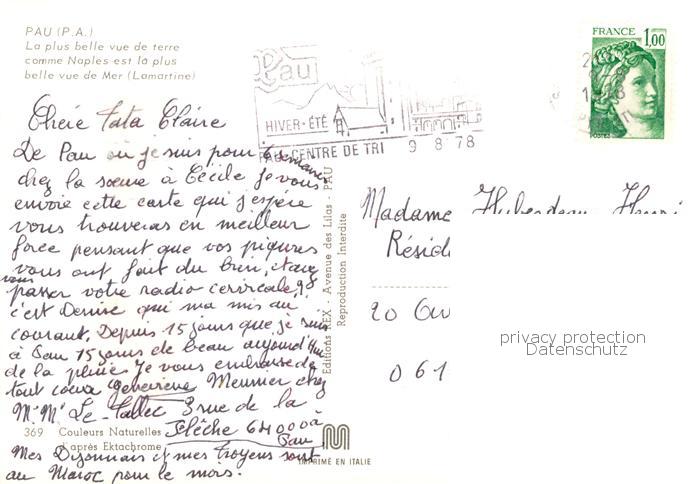 PAU (P.A.)
La plus belle vue de terre
comme Naples est la plus
belle vue de Mer (Lamartine)
Pau
HIVER-ÉTÉ
PAU CENTRE DE TRI
9 8 78
FRANCE 1,00
POSTES
Chère Tata Claire
De Pau où je suis pour semaines
chez la sœur à Cécile je vous
envoie cette carte qui j'espère
vous trouveras en meilleur
force pensant que vos piqures
vous ont fait du bien, et avez
vous passer votre radio cervicale,
c'est Denise qui ma mis au
courant. Depuis 15 jours que je suis
à Pau 15 jours de beau aujourd'hui
de la pluie. Je vous embrasse de
tout cœur Geneviève Meunier chez
Mr Me Le-Tallec 3 rue de la
Flèche 64000 à
Pau
Mes Dijonnais et mes troyens sont
au Maroc pour le mois.
369 Couleurs Naturelles
d'après Ektachrome
Editions REX - Avenue des Lilas - PAU
Reproduction Interdite
IMPRIMÉ EN ITALIE
Madame Henri
Résid
20
061
privacy protection
Datenschutz